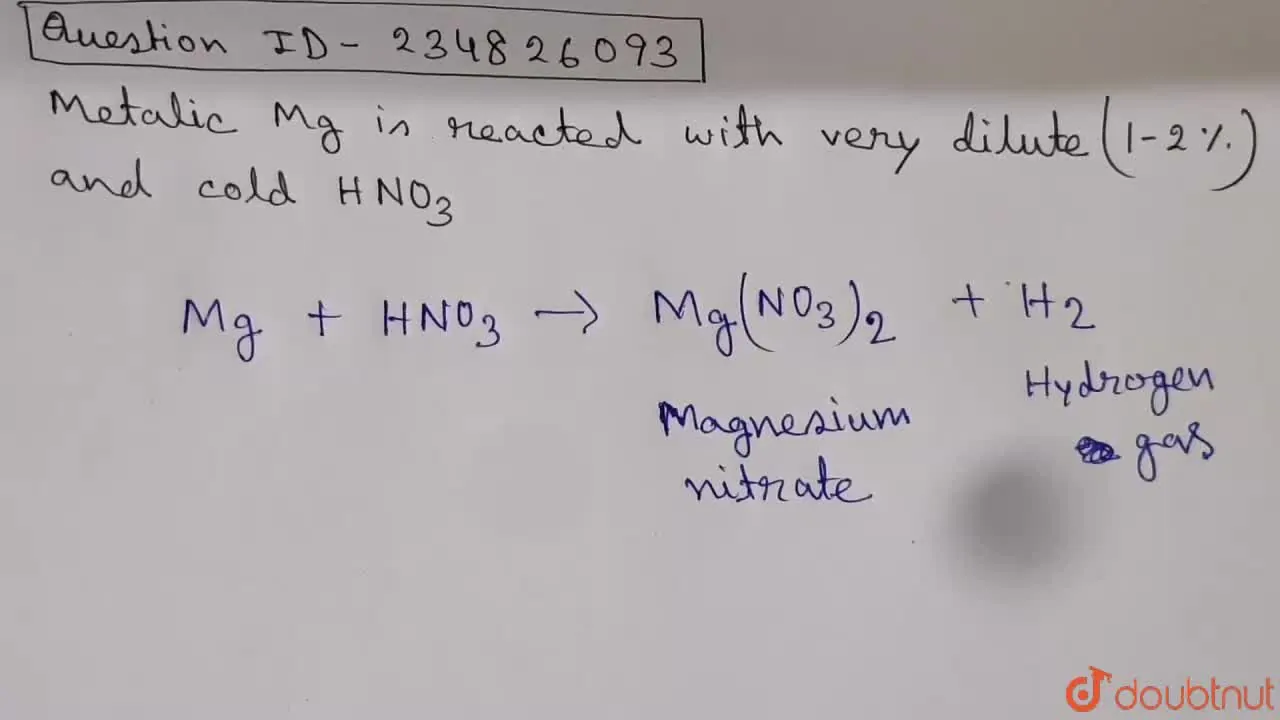 Question ID - 234826093
Metalic Mg is reacted with very dilute (1-2%)
and cold HNO3
Mg + HNO3 → Mg(NO3)2 + H2
Magnesium nitrate
Hydrogen gas
doubtnut